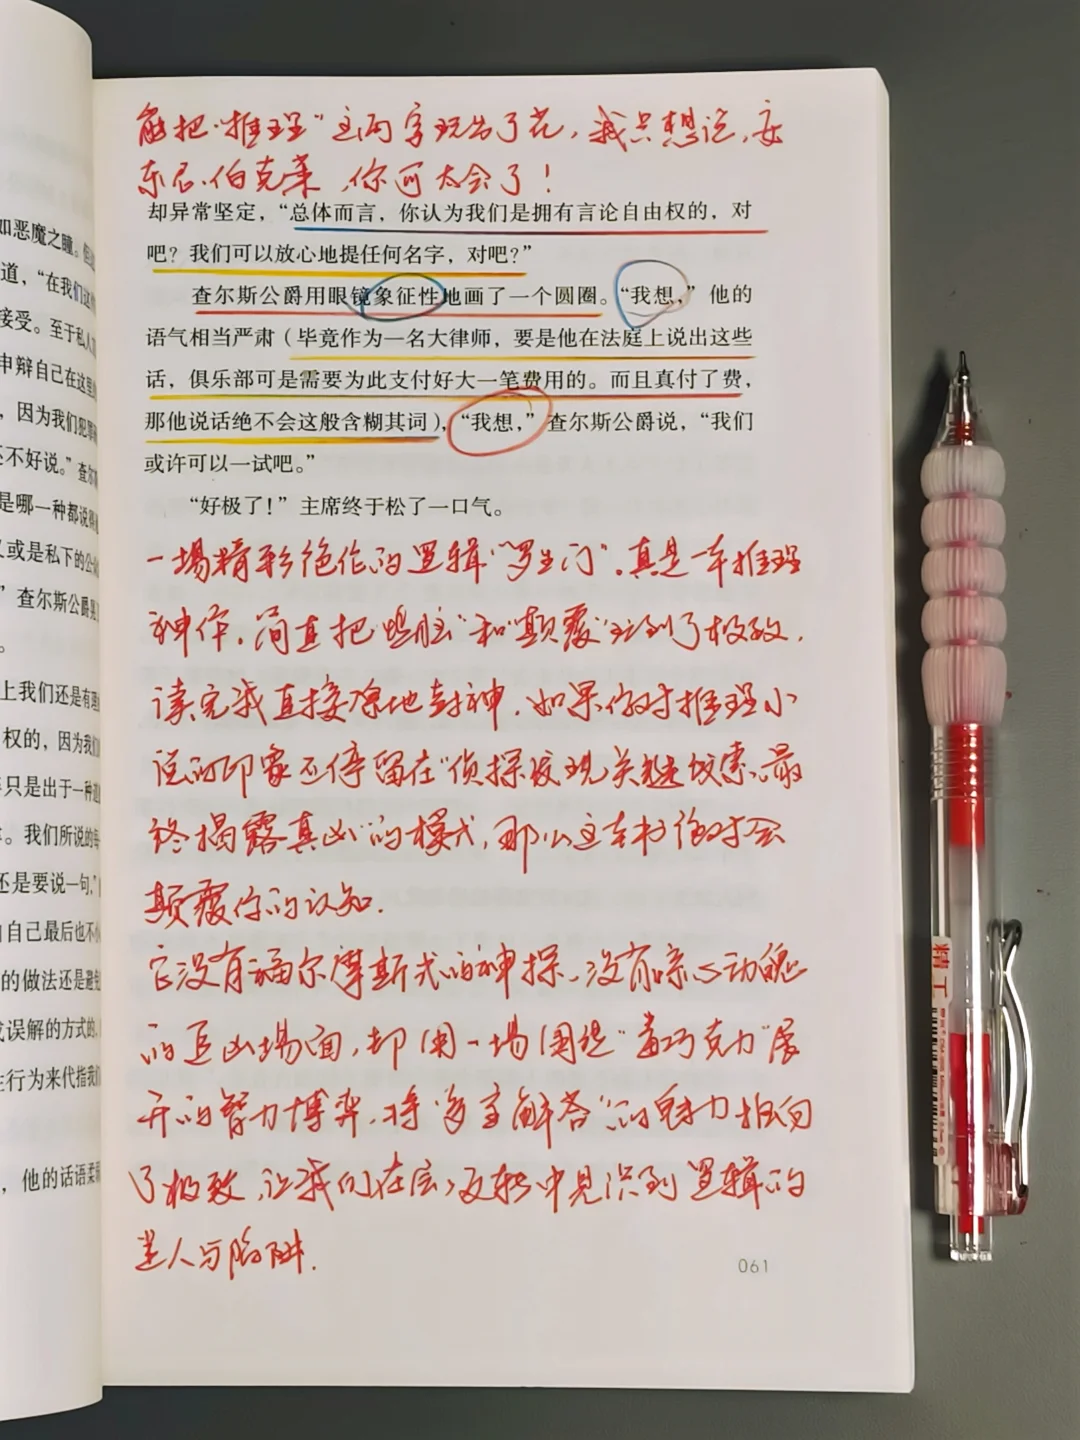 能把“推理”这两字玩出了花,我只想说,安
东尼·伯克莱,你可太会了!
却异常坚定,“总体而言,你认为我们是拥有言论自由权的,对
吧?我们可以放心地提任何名字,对吧?”
查尔斯公爵用眼镜象征性地画了一个圆圈。“我想,”他的
语气相当严肃(毕竟作为一名大律师,要是他在法庭上说出这些
话,俱乐部可是需要为此支付好大一笔费用的。而且真付了费,
那他说话绝不会这般含糊其词),“我想,”查尔斯公爵说,“我们
或许可以一试吧。”
“好极了!”主席终于松了一口气。
一場精彩绝伦的逻辑“罗生门”,真是一本推理
神作,简直把“烧脑”和“颠覆”玩到了极致,
读完我直接原地封神,如果你对推理小
说的印象还停留在“侦探发现关键线索、最
终揭露真凶”的模式,那么这本书绝对会
颠覆你的认知.
它没有福尔摩斯式的神探、没有惊心动魄
的追凶場面,却用一場围绕“毒巧克力”展
开的智力博弈,将“多重解答”的魅力推向
了极致,让我们在层层反转中见识到逻辑的
迷人与陷阱.
061
如恶魔之瞳。
道,“在我们这
接受。至于私人
申辩自己在这里
,因为我们犯罪
还不好说。”查尔
是哪一种都说得
又或是私下的公
”查尔斯公爵
。
上我们还是有理
权的,因为我们
只是出于一种道
。我们所说的每
还是要说一句,”
自己最后也不
的做法还是避免
或误解的方式的
行为来代指我们
,他的话语柔
精工